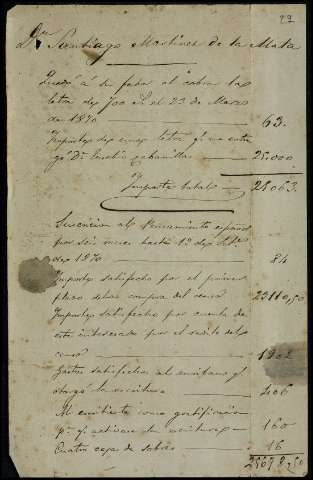 22
Dn Santiago Martinez de la Mata
Quedó á su favor al cobrar la
letra de 700 el 23 de Marzo
de 1870 63.
Importe de una letra q. me entre
gó Dn Eusebio 25.000
Importe total 25063.
Suscricion al Pensamiento español
por seis meses hasta 12 de
de 1870 84
Importe satisfecho por el primer
plazo de la compra del censo 23110,50
Importe satisfecho por cuenta de
este interesado por el redito del
censo 1902
Gastos satisfechos al escribano q.
otorgó la escritura 406
Al escribiente como gratificacion
p. q. activara la escritura 160
Cuatro cajas de sobres 16
25678,50